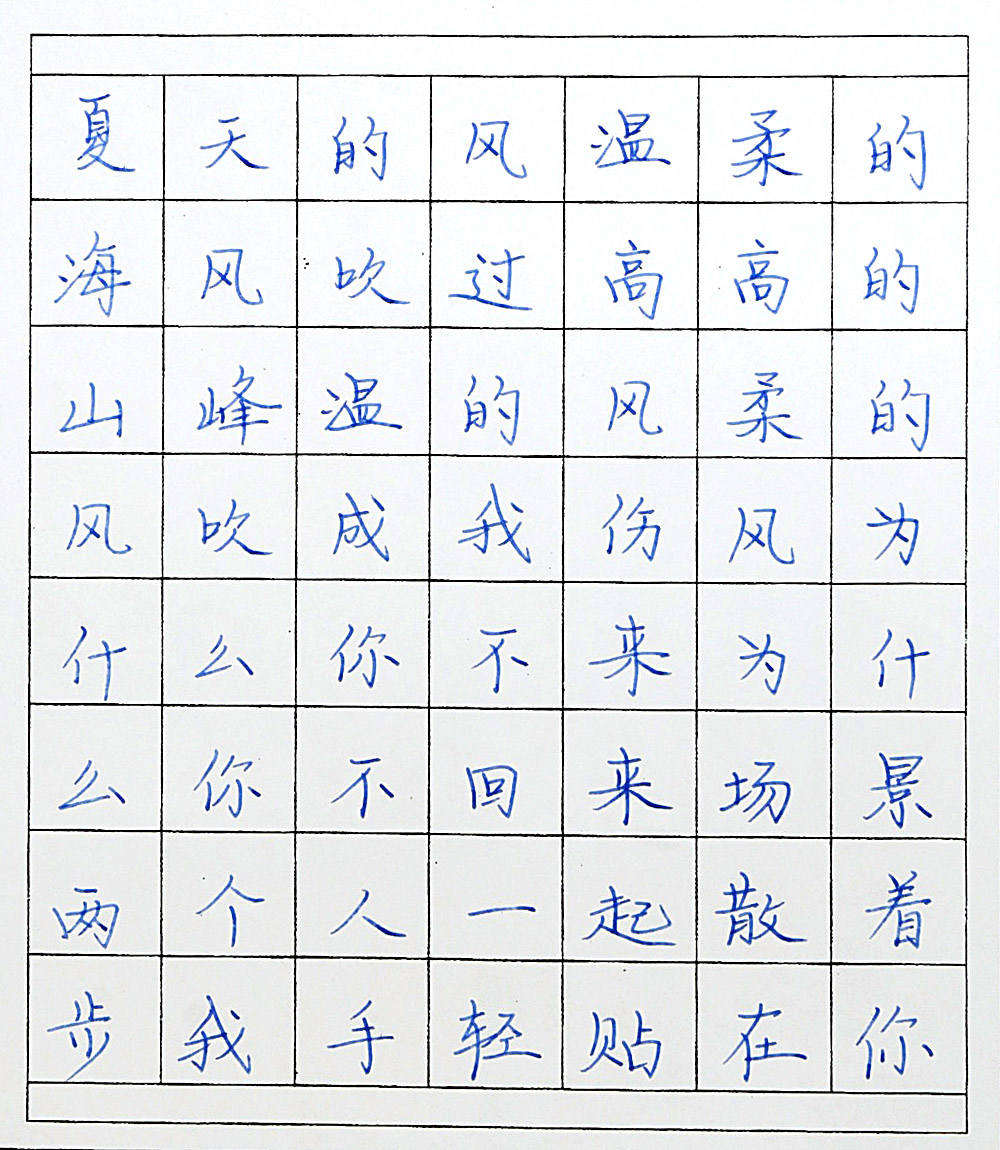 夏天的风温柔的
海风吹过高高的
山峰温的风柔的
风吹成我伤风为
什么你不来为什
么你不回来场景
两个人一起散着
步我手轻贴在你